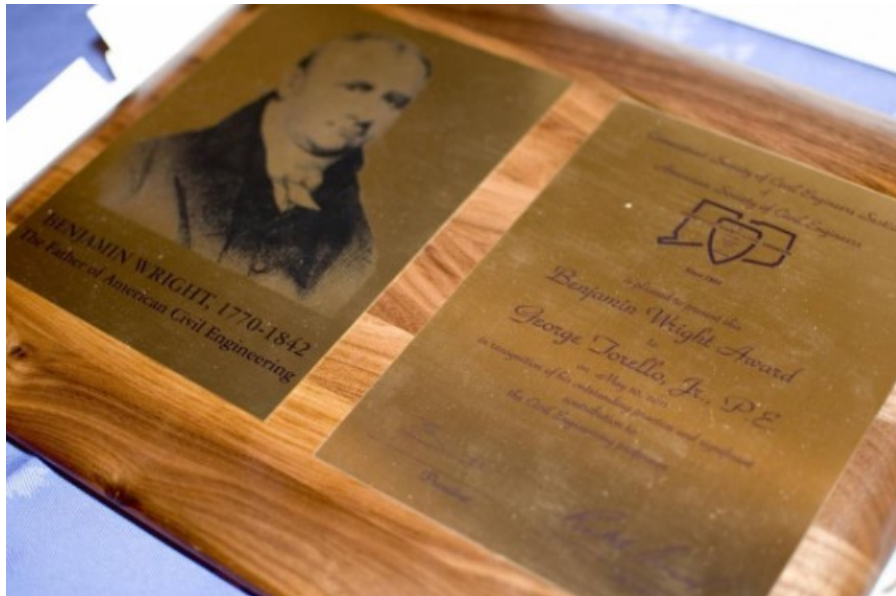 BENJAMIN WRIGHT, 1770-1842
The Father of American Civil Engineering
Connecticut Society of Civil Engineers Section
of
American Society of Civil Engineers
is pleased to present this
Benjamin Wright Award
to
George Torello, Jr., P.E.
on May 10, 2011
in recognition of his outstanding
contribution to
the Civil Engineering profession
President